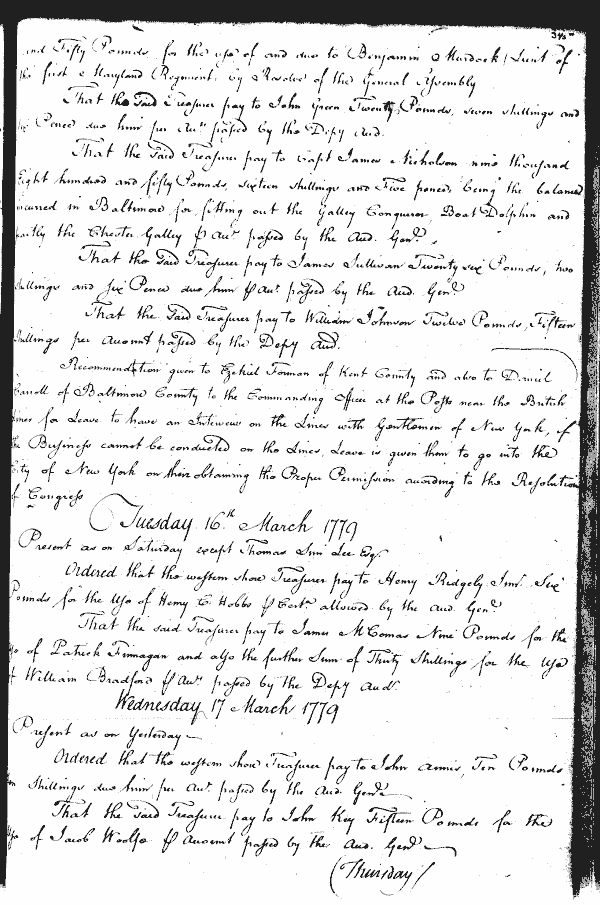 and Fifty Pounds for the use of and due to Benjamin Murdock Lieut of
the first Maryland Regiment, by Resolve of the General Assembly
That the said Treasurer pay to John Green Twenty Pounds, seven shillings and
six Pence due him per Acct passed by the Depy Aud.
That the said Treasurer pay to Capt James Nicholson nine thousand
Eight hundred and fifty Pounds, sixteen shillings and Five pence, being the balance
incured in Baltimore for fitting out the Galley Conqueror, Boat Dolphin and
partly the Chester Galley ⅌ Acct passed by the Aud. Genl.
That the said Treasurer pay to James Sullivan Twenty six Pounds, two
shillings and six Pence due him ⅌ Acct passed by the Aud. Genl
That the said Treasurer pay to William Johnson Twelve Pounds, Fifteen
shillings per Account passed by the Depy Aud.
Recommendation given to Ezekiel Forman of Kent County and also to Daniel
Carroll of Baltimore County to the Commanding Officer at the Posts near the British
Lines for Leave to have an Interview on the Lines with Gentlemen of New York, if
the Business cannot be conducted on the Lines, Leave is given them to go into the
City of New York on their obtaining the Proper Permission according to the Resolution
of Congress
Tuesday 16th March 1779
Present as on Saturday except Thomas Sim Lee Esqr
Ordered that the western shore Treasurer pay to Henry Ridgely Junr. Six
Pounds for the Use of Henry C. Hobbs ⅌ Certe allowed by the Aud. Genl
That the said Treasurer pay to James McComas Nine Pounds for the
Use of Patrick Finnagan and also the further Sum of Thirty Shillings for the Use
of William Bradford ⅌ Acct passed by the Depy Audr
Wednesday 17 March 1779
Present as on Yesterday
Ordered that the western shore Treasurer pay to John Annis, Ten Pounds
Shillings due him per Acct passed by the Aud. Genl
That the said Treasurer pay to John Key Fifteen Pounds for the
Use of Jacob Woolfe ⅌ Account passed by the Aud. Genl
(Thursday)